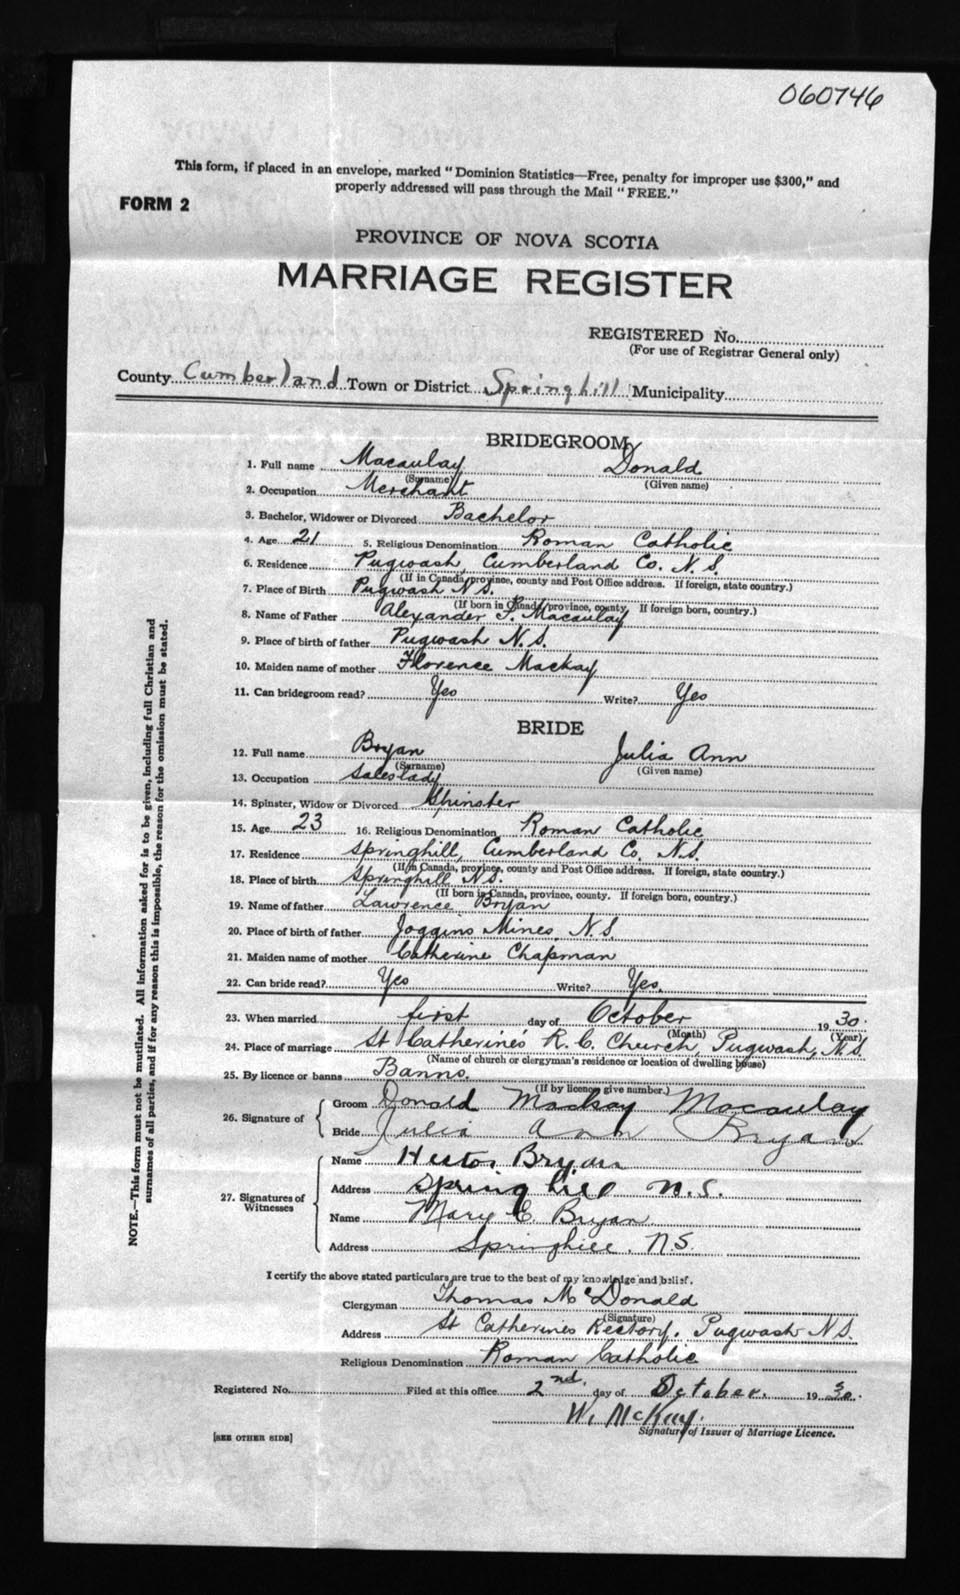 060746
This form, if placed in an envelope, marked "Dominion Statistics—Free, penalty for improper use $300," and
properly addressed will pass through the Mail "FREE."
FORM 2
PROVINCE OF NOVA SCOTIA
MARRIAGE REGISTER
REGISTERED No.
(For use of Registrar General only)
County Cumberland Town or District Springhill Municipality
BRIDEGROOM
1. Full name Macaulay Donald
(Surname) (Given name)
2. Occupation Merchant
3. Bachelor, Widower or Divorced Bachelor
4. Age 21 5. Religious Denomination Roman Catholic
6. Residence Pugwash, Cumberland Co. N.S.
(If in Canada, province, county and Post Office address. If foreign, state country.)
7. Place of Birth Pugwash N.S.
(If born in Canada, province, county. If foreign born, country.)
8. Name of Father Alexander F. Macaulay
9. Place of birth of father Pugwash N.S.
10. Maiden name of mother Florence Mackay
11. Can bridegroom read? Yes Write? Yes
BRIDE
12. Full name Bryan Julia Ann
(Surname) (Given name)
13. Occupation Saleslady
14. Spinster, Widow or Divorced Spinster
15. Age 23 16. Religious Denomination Roman Catholic
17. Residence Springhill, Cumberland Co. N.S.
(If in Canada, province, county and Post Office address. If foreign, state country.)
18. Place of birth Springhill N.S.
(If born in Canada, province, county. If foreign born, country.)
19. Name of father Lawrence Bryan
20. Place of birth of father Joggins Mines, N.S.
21. Maiden name of mother Catherine Chapman
22. Can bride read? Yes Write? Yes.
23. When married first day of October 1930.
(Month) (Year)
24. Place of marriage St Catherine's R.C. Church, Pugwash, N.S.
(Name of church or clergyman's residence or location of dwelling house)
25. By licence or banns Banns.
(If by licence give number.)
26. Signature of Groom Donald Mackay Macaulay
Bride Julia Ann Bryan
27. Signatures of Witnesses Name Hector Bryan
Address Springhill N.S.
Name Mary C. Bryan
Address Springhill, N.S.
I certify the above stated particulars are true to the best of my knowledge and belief.
Clergyman Thomas McDonald
(Signature)
Address St Catherines Rectory, Pugwash N.S.
Religious Denomination Roman Catholic
Registered No. Filed at this office 2nd. day of October. 1930.
W. McKay.
Signature of Issuer of Marriage Licence.
[SEE OTHER SIDE]
NOTE.—This form must not be mutilated. All information asked for is to be given, including full Christian and
surnames of all parties, and if for any reason this is impossible, the reason for the omission must be stated.